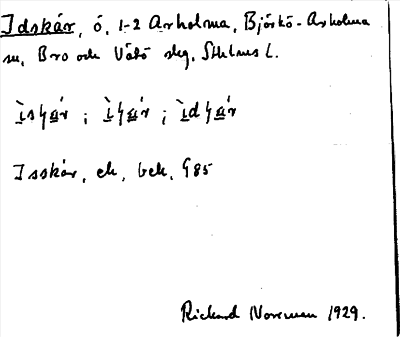 Idskär, ö, 1-2 Arholma, Björkö-Arholma
sn, Bro och Vätö skg, Sthlms l.
Isskär, ek, bek, G85
Rickard Norrman 1929.